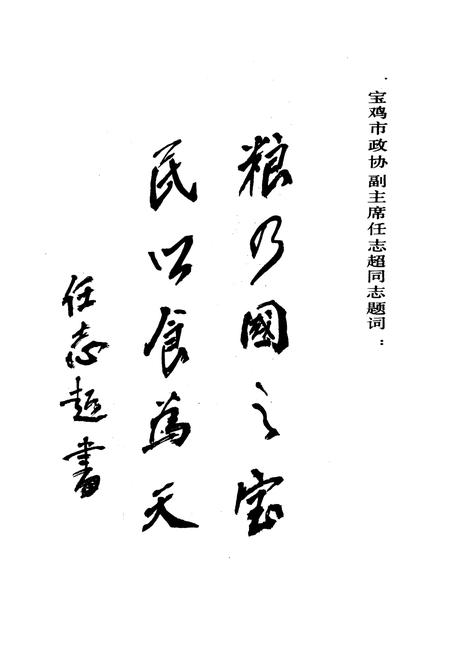 宝鸡市政协副主席任志超同志题词：
粮乃國之宝
民以食為天
任志超書